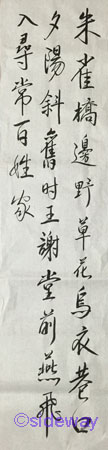 朱雀橋邊野草花烏衣巷口
夕陽斜舊时王謝堂前燕飛
入尋常百姓家
©sideway